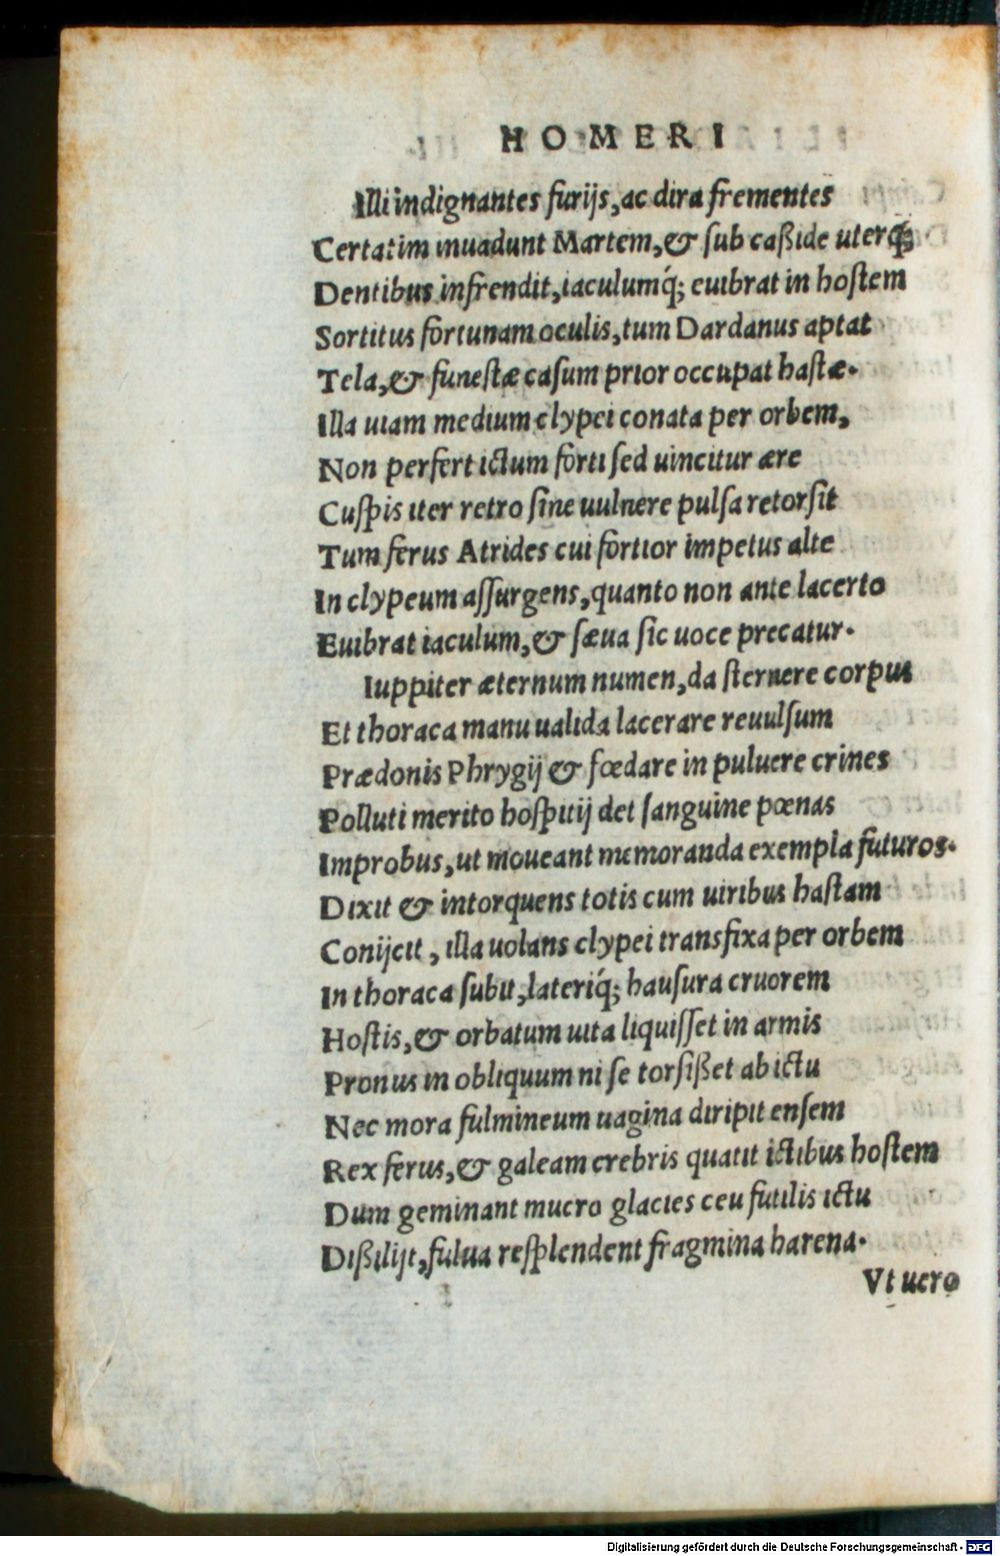 HOMERI
Illi indignantes furijs, ac dira frementes
Certatim inuadunt Martem, & sub caßide uterq;
Dentibus infrendit, iaculumq́; euibrat in hostem
Sortitus fortunam oculis, tum Dardanus aptat
Tela, & funestæ casum prior occupat hastæ.
Illa uiam medium clypei conata per orbem,
Non perfert ictum forti sed uincitur ære
Cuspis iter retro sine uulnere pulsa retorsit
Tum ferus Atrides cui fortior impetus alte
In clypeum assurgens, quanto non ante lacerto
Euibrat iaculum, & sæua sic uoce precatur.
Iuppiter æternum numen, da sternere corpus
Et thoraca manu ualida lacerare reuulsum
Prædonis Phrygij & fœdare in puluere crines
Polluti merito hospitij det sanguine pœnas
Improbus, ut moueant memoranda exempla futuros.
Dixit & intorquens totis cum uiribus hastam
Conijcit, illa uolans clypei transfixa per orbem
In thoraca subit, lateriq́; hausura cruorem
Hostis, & orbatum uita liquisset in armis
Pronus in obliquum ni se torsißet ab ictu
Nec mora fulmineum uagina diripit ensem
Rex ferus, & galeam crebris quatit ictibus hostem
Dum geminant mucro glacies ceu futilis ictu
Dißilijt, fulua resplendent fragmina harena.
Vt uero
Digitalisierung gefördert durch die Deutsche Forschungsgemeinschaft - DFG